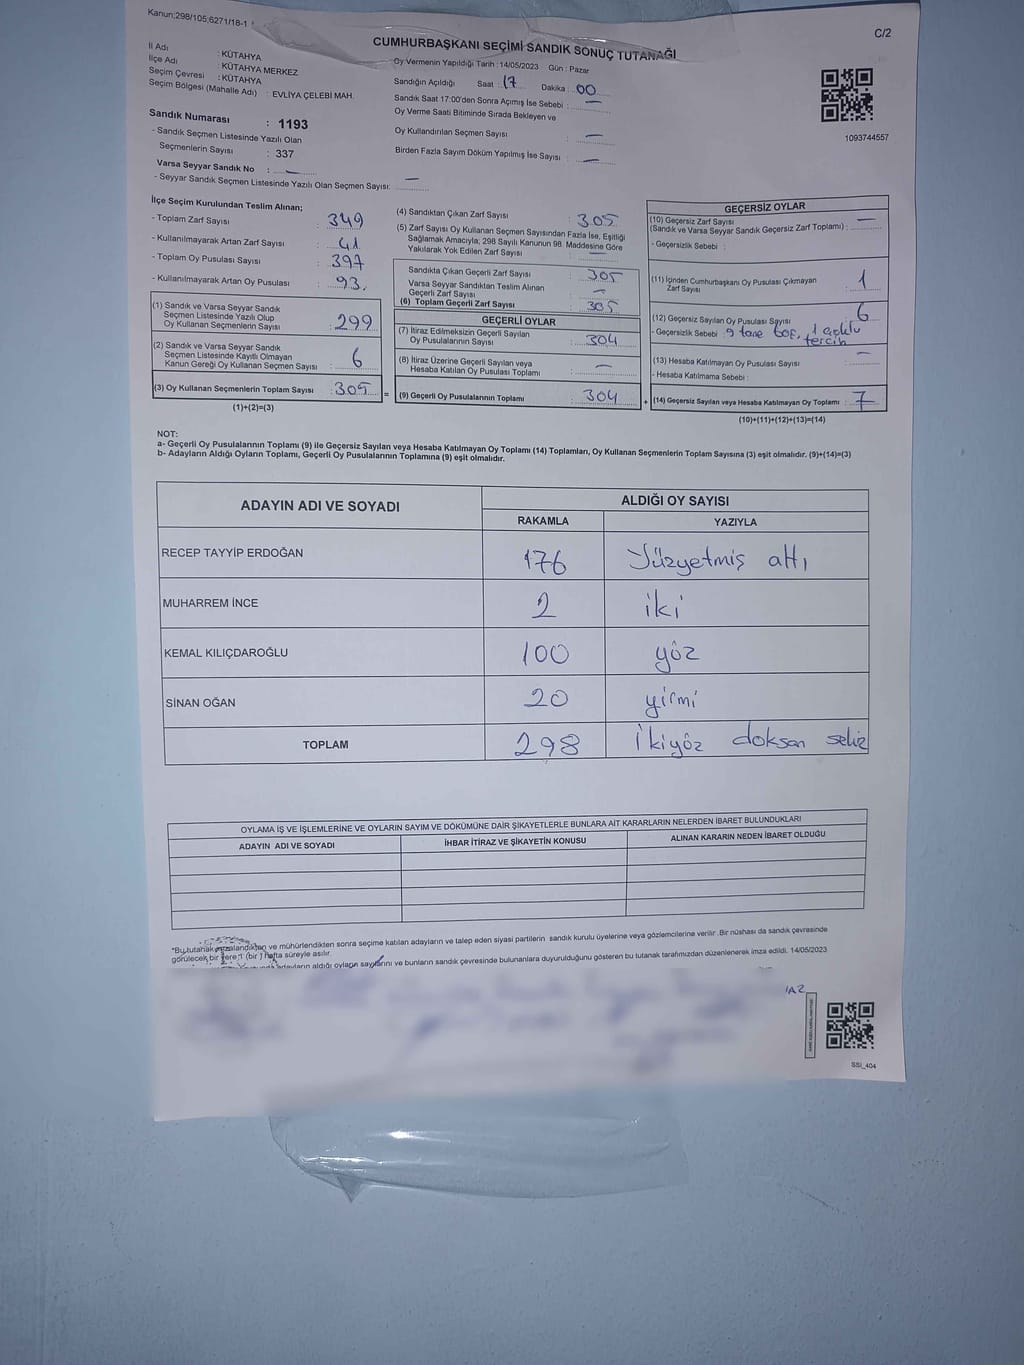 Kanun;298/105;6271/18-1
C/2
CUMHURBAŞKANI SEÇİMİ SANDIK SONUÇ TUTANAĞI
İl Adı : KÜTAHYA
İlçe Adı : KÜTAHYA MERKEZ
Seçim Çevresi : KÜTAHYA
Seçim Bölgesi (Mahalle Adı) : EVLİYA ÇELEBİ MAH.
Oy Vermenin Yapıldığı Tarih : 14/05/2023 Gün : Pazar
Sandığın Açıldığı Saat : 17 Dakika : 00
Sandık Saat 17:00'den Sonra Açımış İse Sebebi : —
Oy Verme Saati Bitiminde Sırada Bekleyen ve
Oy Kullandırılan Seçmen Sayısı : —
Birden Fazla Sayım Döküm Yapılmış İse Sayısı : —
1093744557
Sandık Numarası : 1193
- Sandık Seçmen Listesinde Yazılı Olan
Seçmenlerin Sayısı : 337
Varsa Seyyar Sandık No : —
- Seyyar Sandık Seçmen Listesinde Yazılı Olan Seçmen Sayısı: —
İlçe Seçim Kurulundan Teslim Alınan;
- Toplam Zarf Sayısı : 349
- Kullanılmayarak Artan Zarf Sayısı : 41
- Toplam Oy Pusulası Sayısı : 397
- Kullanılmayarak Artan Oy Pusulası : 93.
(1) Sandık ve Varsa Seyyar Sandık
Seçmen Listesinde Yazılı Olup
Oy Kullanan Seçmenlerin Sayısı : 299
(2) Sandık ve Varsa Seyyar Sandık
Seçmen Listesinde Kayıtlı Olmayan
Kanun Gereği Oy Kullanan Seçmen Sayısı : 6
(3) Oy Kullanan Seçmenlerin Toplam Sayısı : 305
(1)+(2)=(3)
=
(4) Sandıktan Çıkan Zarf Sayısı : 305
(5) Zarf Sayısı Oy Kullanan Seçmen Sayısından Fazla İse, Eşitliği
Sağlamak Amacıyla; 298 Sayılı Kanunun 98. Maddesine Göre
Yakılarak Yok Edilen Zarf Sayısı : —
Sandıkta Çıkan Geçerli Zarf Sayısı : 305
Varsa Seyyar Sandıktan Teslim Alınan
Geçerli Zarf Sayısı : —
(6) Toplam Geçerli Zarf Sayısı : 305
GEÇERLİ OYLAR
(7) İtiraz Edilmeksizin Geçerli Sayılan
Oy Pusulalarının Sayısı : 304
(8) İtiraz Üzerine Geçerli Sayılan veya
Hesaba Katılan Oy Pusulası Toplamı : —
(9) Geçerli Oy Pusulalarının Toplamı : 304
+
GEÇERSİZ OYLAR
(10) Geçersiz Zarf Sayısı
(Sandık ve Varsa Seyyar Sandık Geçersiz Zarf Toplamı) : —
- Geçersizlik Sebebi :
(11) İçinden Cumhurbaşkanı Oy Pusulası Çıkmayan
Zarf Sayısı : 1
(12) Geçersiz Sayılan Oy Pusulası Sayısı : 6
- Geçersizlik Sebebi : tane 1 çoklu
tercih
(13) Hesaba Katılmayan Oy Pusulası Sayısı : —
- Hesaba Katılmama Sebebi :
(14) Geçersiz Sayılan veya Hesaba Katılmayan Oy Toplamı : 7
(10)+(11)+(12)+(13)=(14)
NOT:
a- Geçerli Oy Pusulalarının Toplamı (9) ile Geçersiz Sayılan veya Hesaba Katılmayan Oy Toplamı (14) Toplamları, Oy Kullanan Seçmenlerin Toplam Sayısına (3) eşit olmalıdır. (9)+(14)=(3)
b- Adayların Aldığı Oyların Toplamı, Geçerli Oy Pusulalarının Toplamına (9) eşit olmalıdır.
ADAYIN ADI VE SOYADI
ALDIĞI OY SAYISI
RAKAMLA YAZIYLA
RECEP TAYYİP ERDOĞAN 176 Yüzyetmiş altı
MUHARREM İNCE 2 iki
KEMAL KILIÇDAROĞLU 100 yöz
SİNAN OĞAN 20 yirmi
TOPLAM 298 İkiyöz doksan sekiz
OYLAMA İŞ VE İŞLEMLERİNE VE OYLARIN SAYIM VE DÖKÜMÜNE DAİR ŞİKAYETLERLE BUNLARA AİT KARARLARIN NELERDEN İBARET BULUNDUKLARI
ADAYIN ADI VE SOYADI İHBAR İTİRAZ VE ŞİKAYETİN KONUSU ALINAN KARARIN NEDEN İBARET OLDUĞU
*Bu tutanak imzalandıktan ve mühürlendikten sonra seçime katılan adayların ve talep eden siyasi partilerin sandık kurulu üyelerine veya gözlemcilerine verilir .Bir nüshası da sandık çevresinde
görülecek bir yere 1 (bir ) hafta süreyle asılır.
adayların aldığı oyların sayılarını ve bunların sandık çevresinde bulunanlara duyurulduğunu gösteren bu tutanak tarafımızdan düzenlenerek imza edildi. 14/05/2023
SSI_404